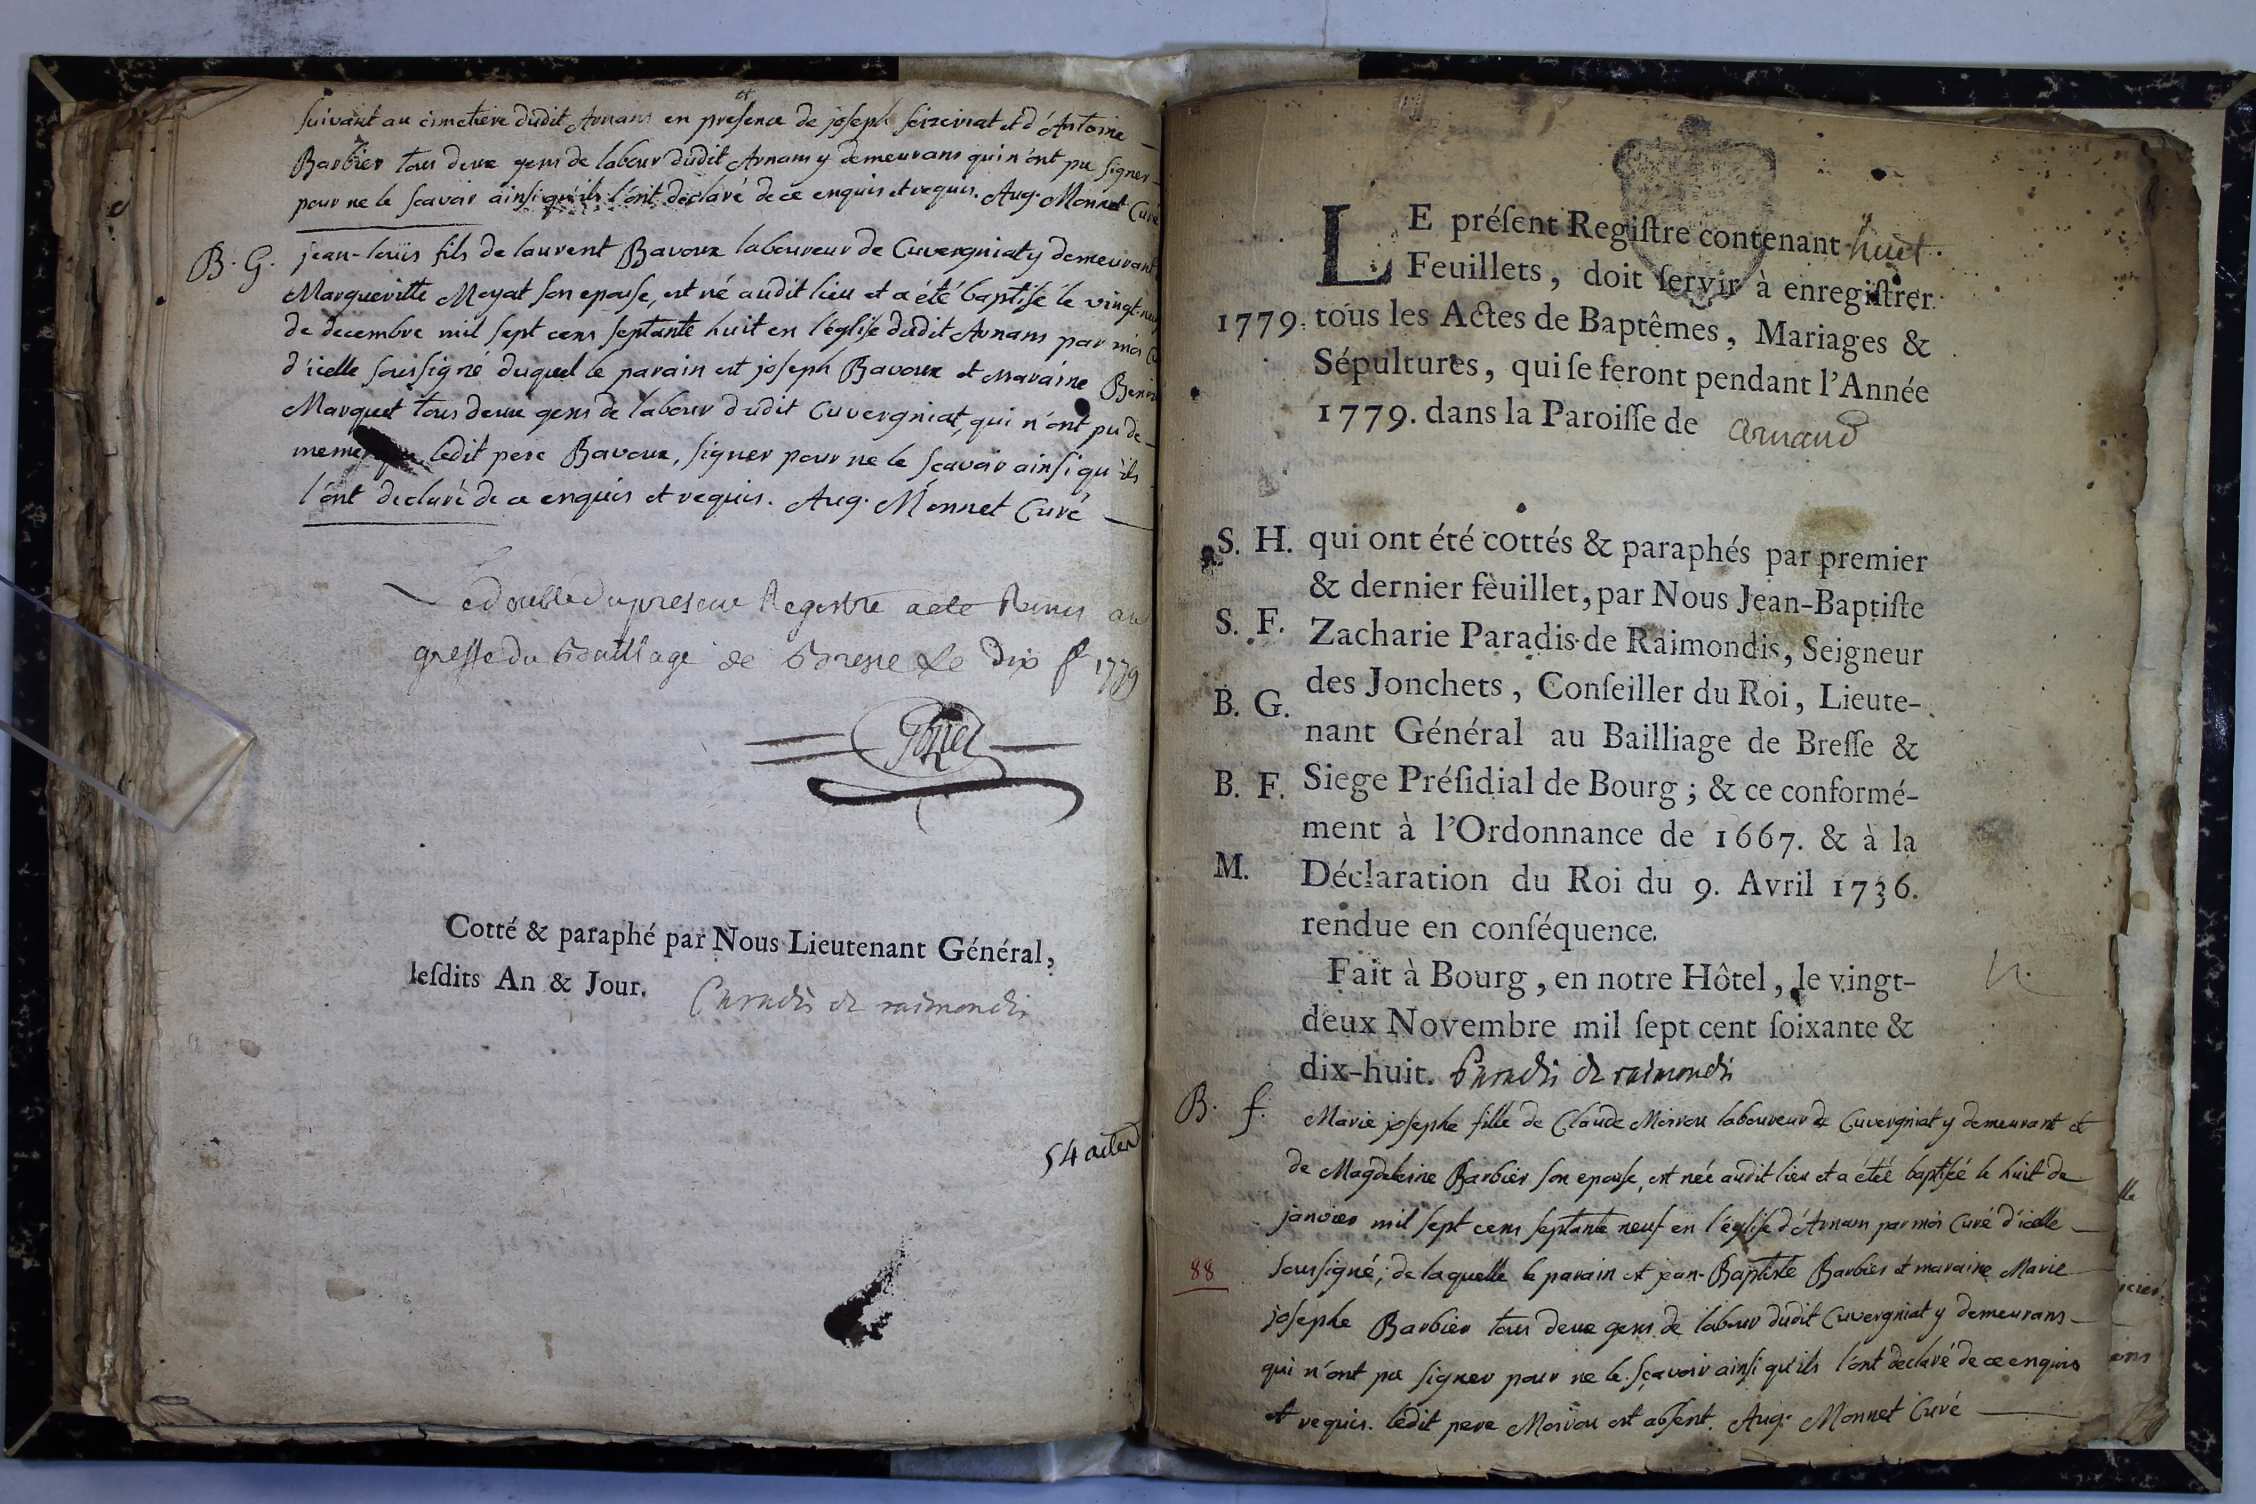 suivant au cimetiere dudit Arnans en presence de joseph seizeriat et d'Antoine
Barbier tous deux gens de labour dudit Arnans y demeurans qui n'ont pu signer
pour ne le scavoir ainsi qu'ils l'ont declaré de ce enquis et requis. Aug. Monnet Curé
B. G. jean-louis fils de laurent Bavoux laboureur de Cuvergniat y demeurant
Margueritte Moyat son epouse, est né audit lieu et a été baptisé le vingt-neuf
de decembre mil sept cens septante huit en l'église dudit Arnans par moi
d'icelle soussigné duquel le parain est joseph Bavoux et maraine
Marquet tous deux gens de labour dudit Cuvergniat, qui n'ont pu de
meme que ledit pere Bavoux, signer pour ne le sçavoir ainsi qu'ils
l'ont declaré de ce enquis et requis. Aug. Monnet Curé
Le double du present Registre a ete Remis au
greffe du Bailliage de Bresse Le dix fr 1779
Cotté & paraphé par Nous Lieutenant Général,
lesdits An & Jour. Paradis de raimondis
54 actes
LE préſent Regiſtre contenant huit
Feuillets, doit ſervir à enregiſtrer
1779. tous les Actes de Baptêmes, Mariages &
Sépultures, qui ſe feront pendant l'Année
1779. dans la Paroiſſe de arnand
S. H. qui ont été cottés & paraphés par premier
& dernier feuillet, par Nous Jean-Baptiſte
S. F. Zacharie Paradis de Raimondis, Seigneur
des Jonchets, Conſeiller du Roi, Lieute-
B. G. nant Général au Bailliage de Breſſe &
B. F. Siege Préſidial de Bourg ; & ce conformé-
ment à l'Ordonnance de 1667. & à la
M. Déclaration du Roi du 9. Avril 1736.
rendue en conſéquence.
Fait à Bourg, en notre Hôtel, le vingt-
deux Novembre mil ſept cent ſoixante &
dix-huit. Paradis de raimondis
B. f. Marie josephe fille de Claude Moirou laboureur de Cuvergniat y demeurant et
de Magdeleine Barbier son epouse, est née audit lieu et a été baptisée le huit de
janvier mil sept cens septante neuf en l'église d'Arnans par moi Curé d'icelle
88 soussigné; de laquelle le parain est jean-Baptiste Barbier et maraine Marie
josephe Barbier tous deux gens de labour dudit Cuvergniat y demeurans
qui n'ont pu signer pour ne le sçavoir ainsi qu'ils l'ont declaré de ce enquis
et requis. ledit pere Moirou est absent. Aug. Monnet Curé